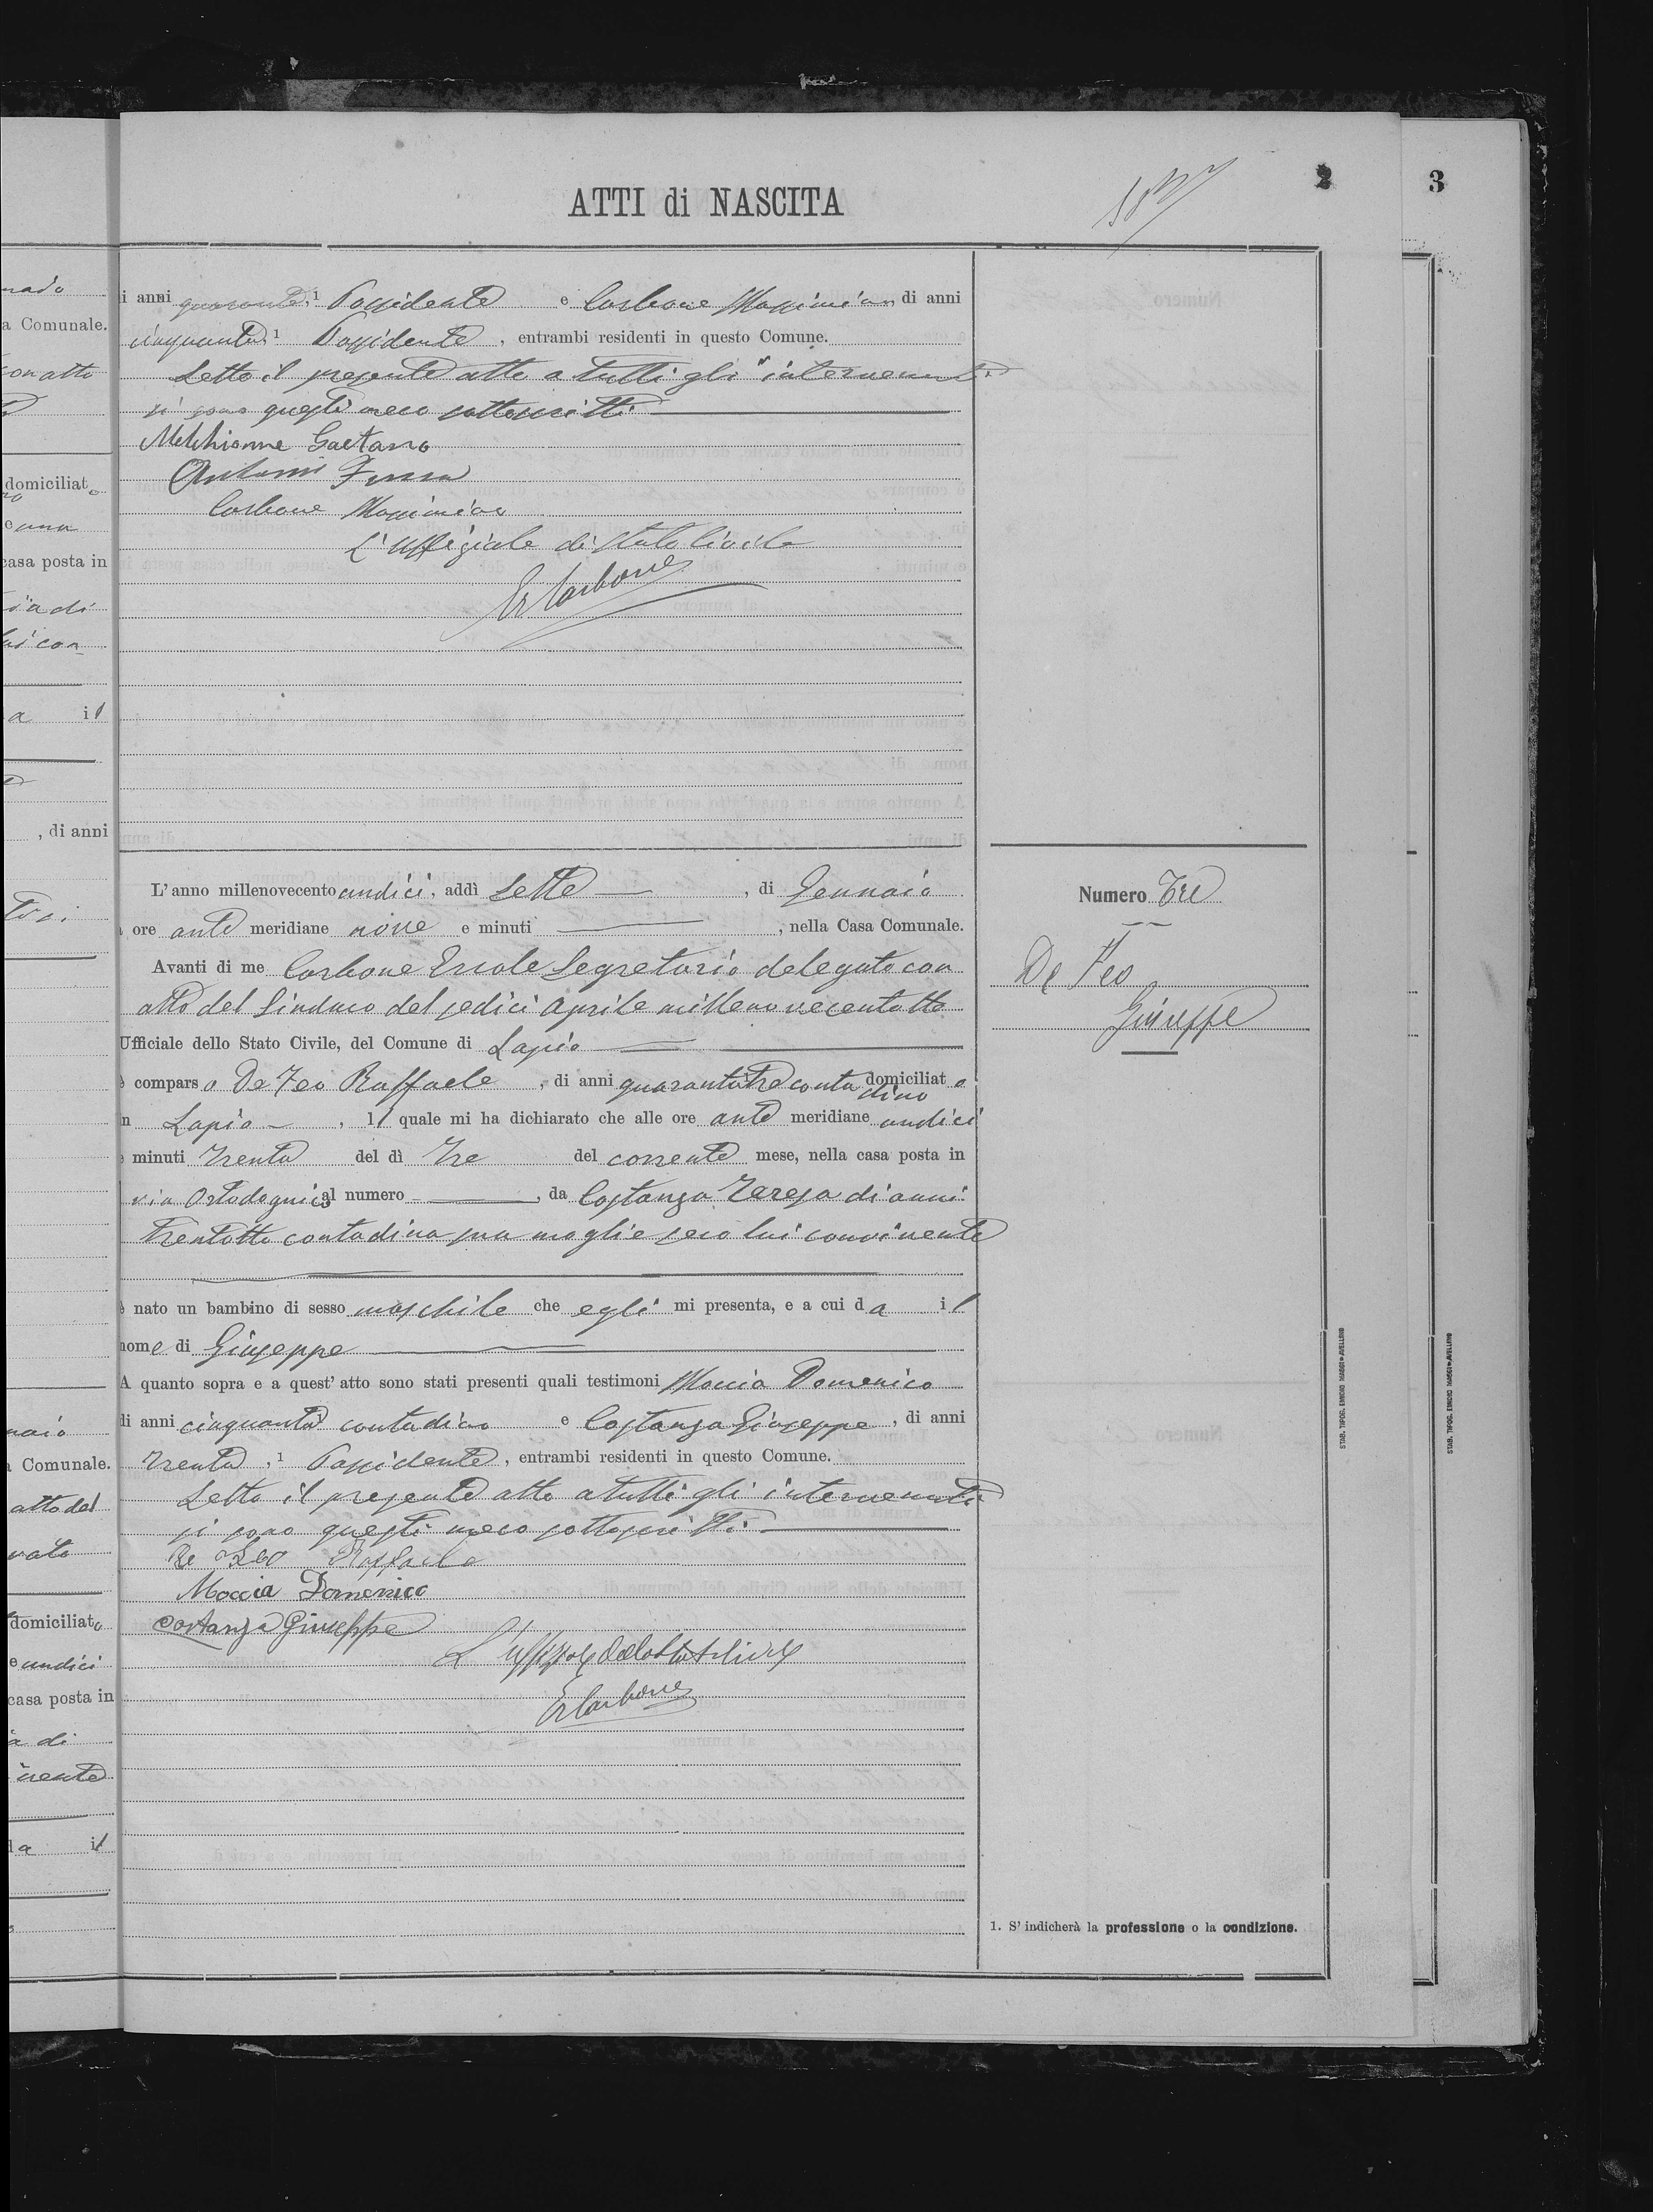 ATTI di NASCITA
2
3
i anni quaranta, 1 Possidente e Carbone Massimino di anni
cinquanta 1 Possidente, entrambi residenti in questo Comune.
Letto il presente atto a tutti gli intervenuti
si sono questi meco sottoscritti
Melchionne Gaetano
Antonio
Carbone Massimino
L'Uffiziale di Stato Civile
E Carbone
L'anno millenovecento undici, addì Sette, di Gennaio
ore ante meridiane nove e minuti, nella Casa Comunale.
Avanti di me Carbone Ercole Segretario delegato con
atto del Sindaco del sedici Aprile millenovecentotto
Ufficiale dello Stato Civile, del Comune di Lapio
è comparso De Feo Raffaele, di anni quarantatre contadino domiciliato
n Lapio, il quale mi ha dichiarato che alle ore ante meridiane undici
e minuti trenta del dì tre del corrente mese, nella casa posta in
via al numero, da Costanza Teresa di anni
trentotto contadina sua moglie seco lui convivente
è nato un bambino di sesso maschile che egli mi presenta, e a cui da il
nome di Giuseppe
A quanto sopra e a quest'atto sono stati presenti quali testimoni Moccia Domenico
di anni cinquanta contadino e Costanza Giuseppe, di anni
trenta, 1 Possidente, entrambi residenti in questo Comune.
Letto il presente atto a tutti gli intervenuti
si sono questi meco sottoscritti
De Feo Raffaele
Moccia Domenico
Costanza Giuseppe
L'Uffiziale dello Stato Civile
E Carbone
Numero Tre
De Feo
Giuseppe
1. S'indicherà la professione o la condizione.
STAB. TIPOG. ENNIO MAGGI - AVELLINO
STAB. TIPOG. ENNIO MAGGI - AVELLINO
a Comunale.
on atto
domiciliato
e una
casa posta in
ia di
lui con
a il
, di anni
naio
a Comunale.
atto del
domiciliato
e undici
casa posta in
a di
vente
da il